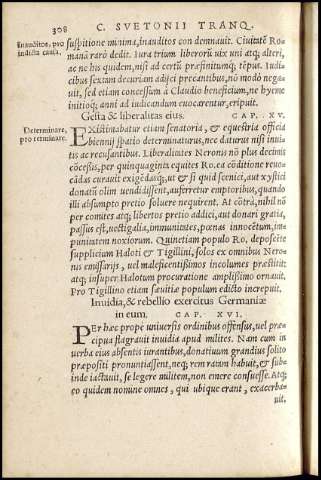 308 C. SVETONII TRANQ.
Inauditos, pro
indicta causa.
suspitione minima, inauditos condemnauit. Ciuitatē Ro
manā rarò dedit. Iura trium liberorū uix uni atq; alteri,
ac ne his quidem, nisi ad certū præfinitumq; tēpus. Iudi=
cibus sextam decuriam adijci precantibus, nō modò nega=
uit, sed etiam concessum à Claudio beneficium, ne hyeme
initioq; anni ad iudicandum euocarentur, eripuit.
Gesta & liberalitas eius. CAP. XV.
Determinare,
pro terminare.
EXistimabatur etiam senatoria, & equestria officia
biennij spatio determinaturus, nec daturus nisi inui=
tis ac recusantibus. Liberalitates Neronis nō plus decimis
cōceßis, per quinquaginta equites Ro. ea cōditione reuo=
cādas curauit exigēdasq;, ut & si quid scenici, aut xystici
donatū olim uendidissent, auferretur emptoribus, quando
illi absumpto pretio soluere nequirent. At cōtrà, nihil nō
per comites atq; libertos pretio addici, aut donari gratia,
passus est, uectigalia, immunitates, pœnas innocētum, im
punitatem noxiorum. Quinetiam populo Ro. deposcēte
supplicium Haloti & Tigillini, solos ex omnibus Nero=
nis emissarijs, uel maleficentißimos incolumes præstitit:
atq; insuper Halotum procuratione amplißima ornauit.
Pro Tigillino etiam sæuitiæ populum edicto increpuit.
Inuidia, & rebellio exercitus Germaniæ
in eum. CAP. XVI.
PEr hæc prope uniuersis ordinibus offensus, uel præ=
cipua flagrauit inuidia apud milites. Nam cum in
uerba eius absentis iurantibus, donatiuum grandius solito
præpositi pronuntiassent, neq; rem ratam habuit, & sub=
inde iactauit, se legere militem, non emere consuesse. Atq;
eo quidem nomine omnes, qui ubique erant, exacerba=
uit.